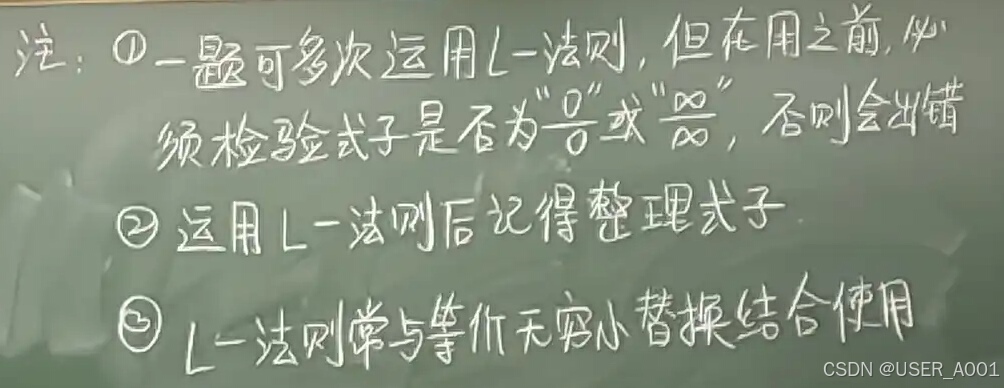 注：①一题可多次运用L-法则，但在用之前，必
须检验式子是否为"0/0"或"∞/∞"，否则会出错
②运用L-法则后记得整理式子
③L-法则常与等价无穷小替换结合使用
CSDN @USER_A001